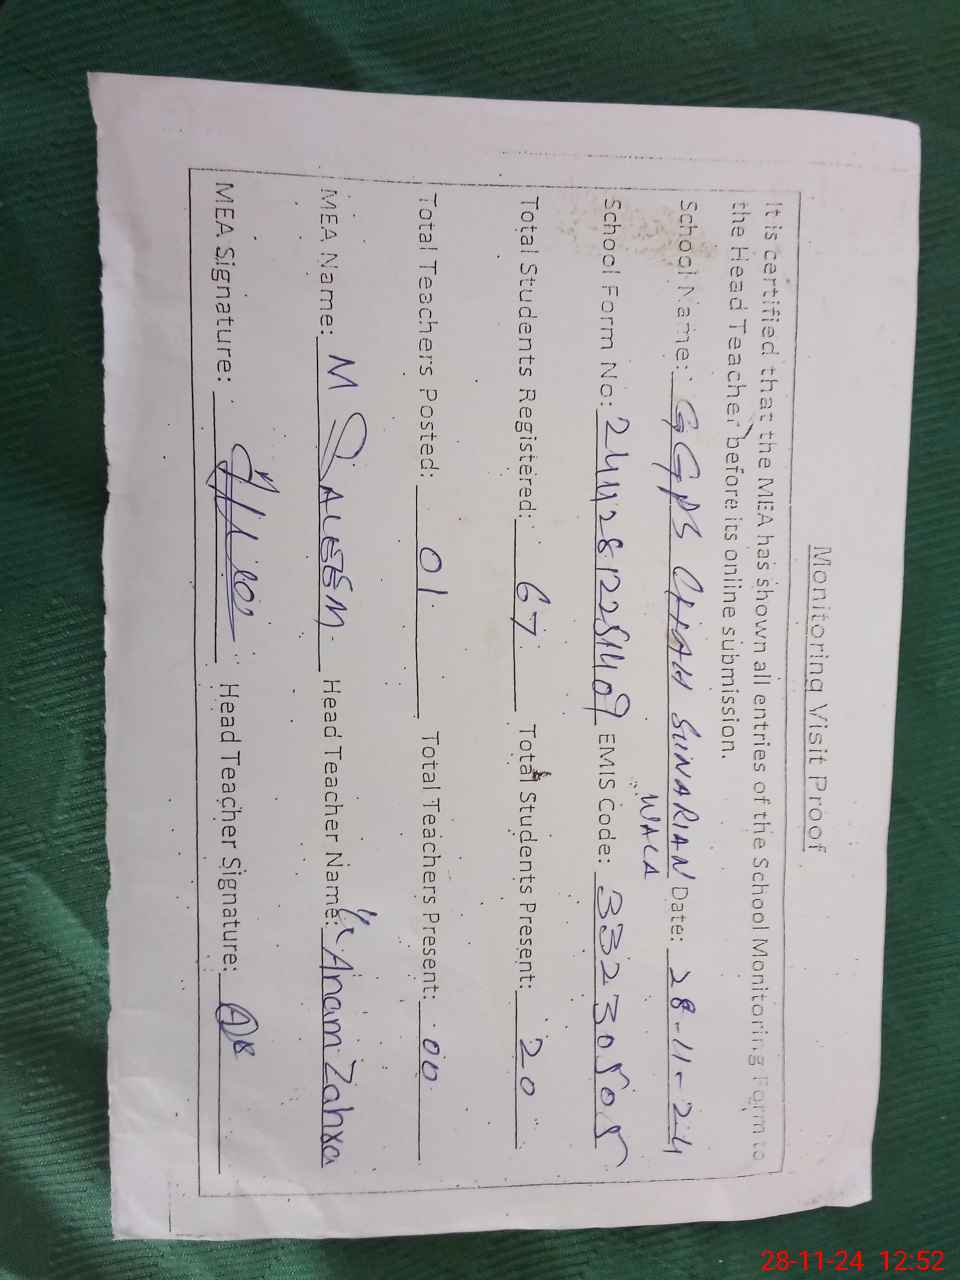 Monitoring Visit Proof
It is certified that the MEA has shown all entries of the School Monitoring Form to
the Head Teacher before its online submission.
School Name: GGPS CHAH SUNARIAN Date: 28-11-24
WALA
School Form No: 24412812251409 EMIS Code: 33230505
Total Students Registered: 67 Total Students Present: 20
Total Teachers Posted: 01 Total Teachers Present: 00
MEA Name: M SALEEM Head Teacher Name: Anam Zahra
MEA Signature: Head Teacher Signature:
28-11-24 12:52